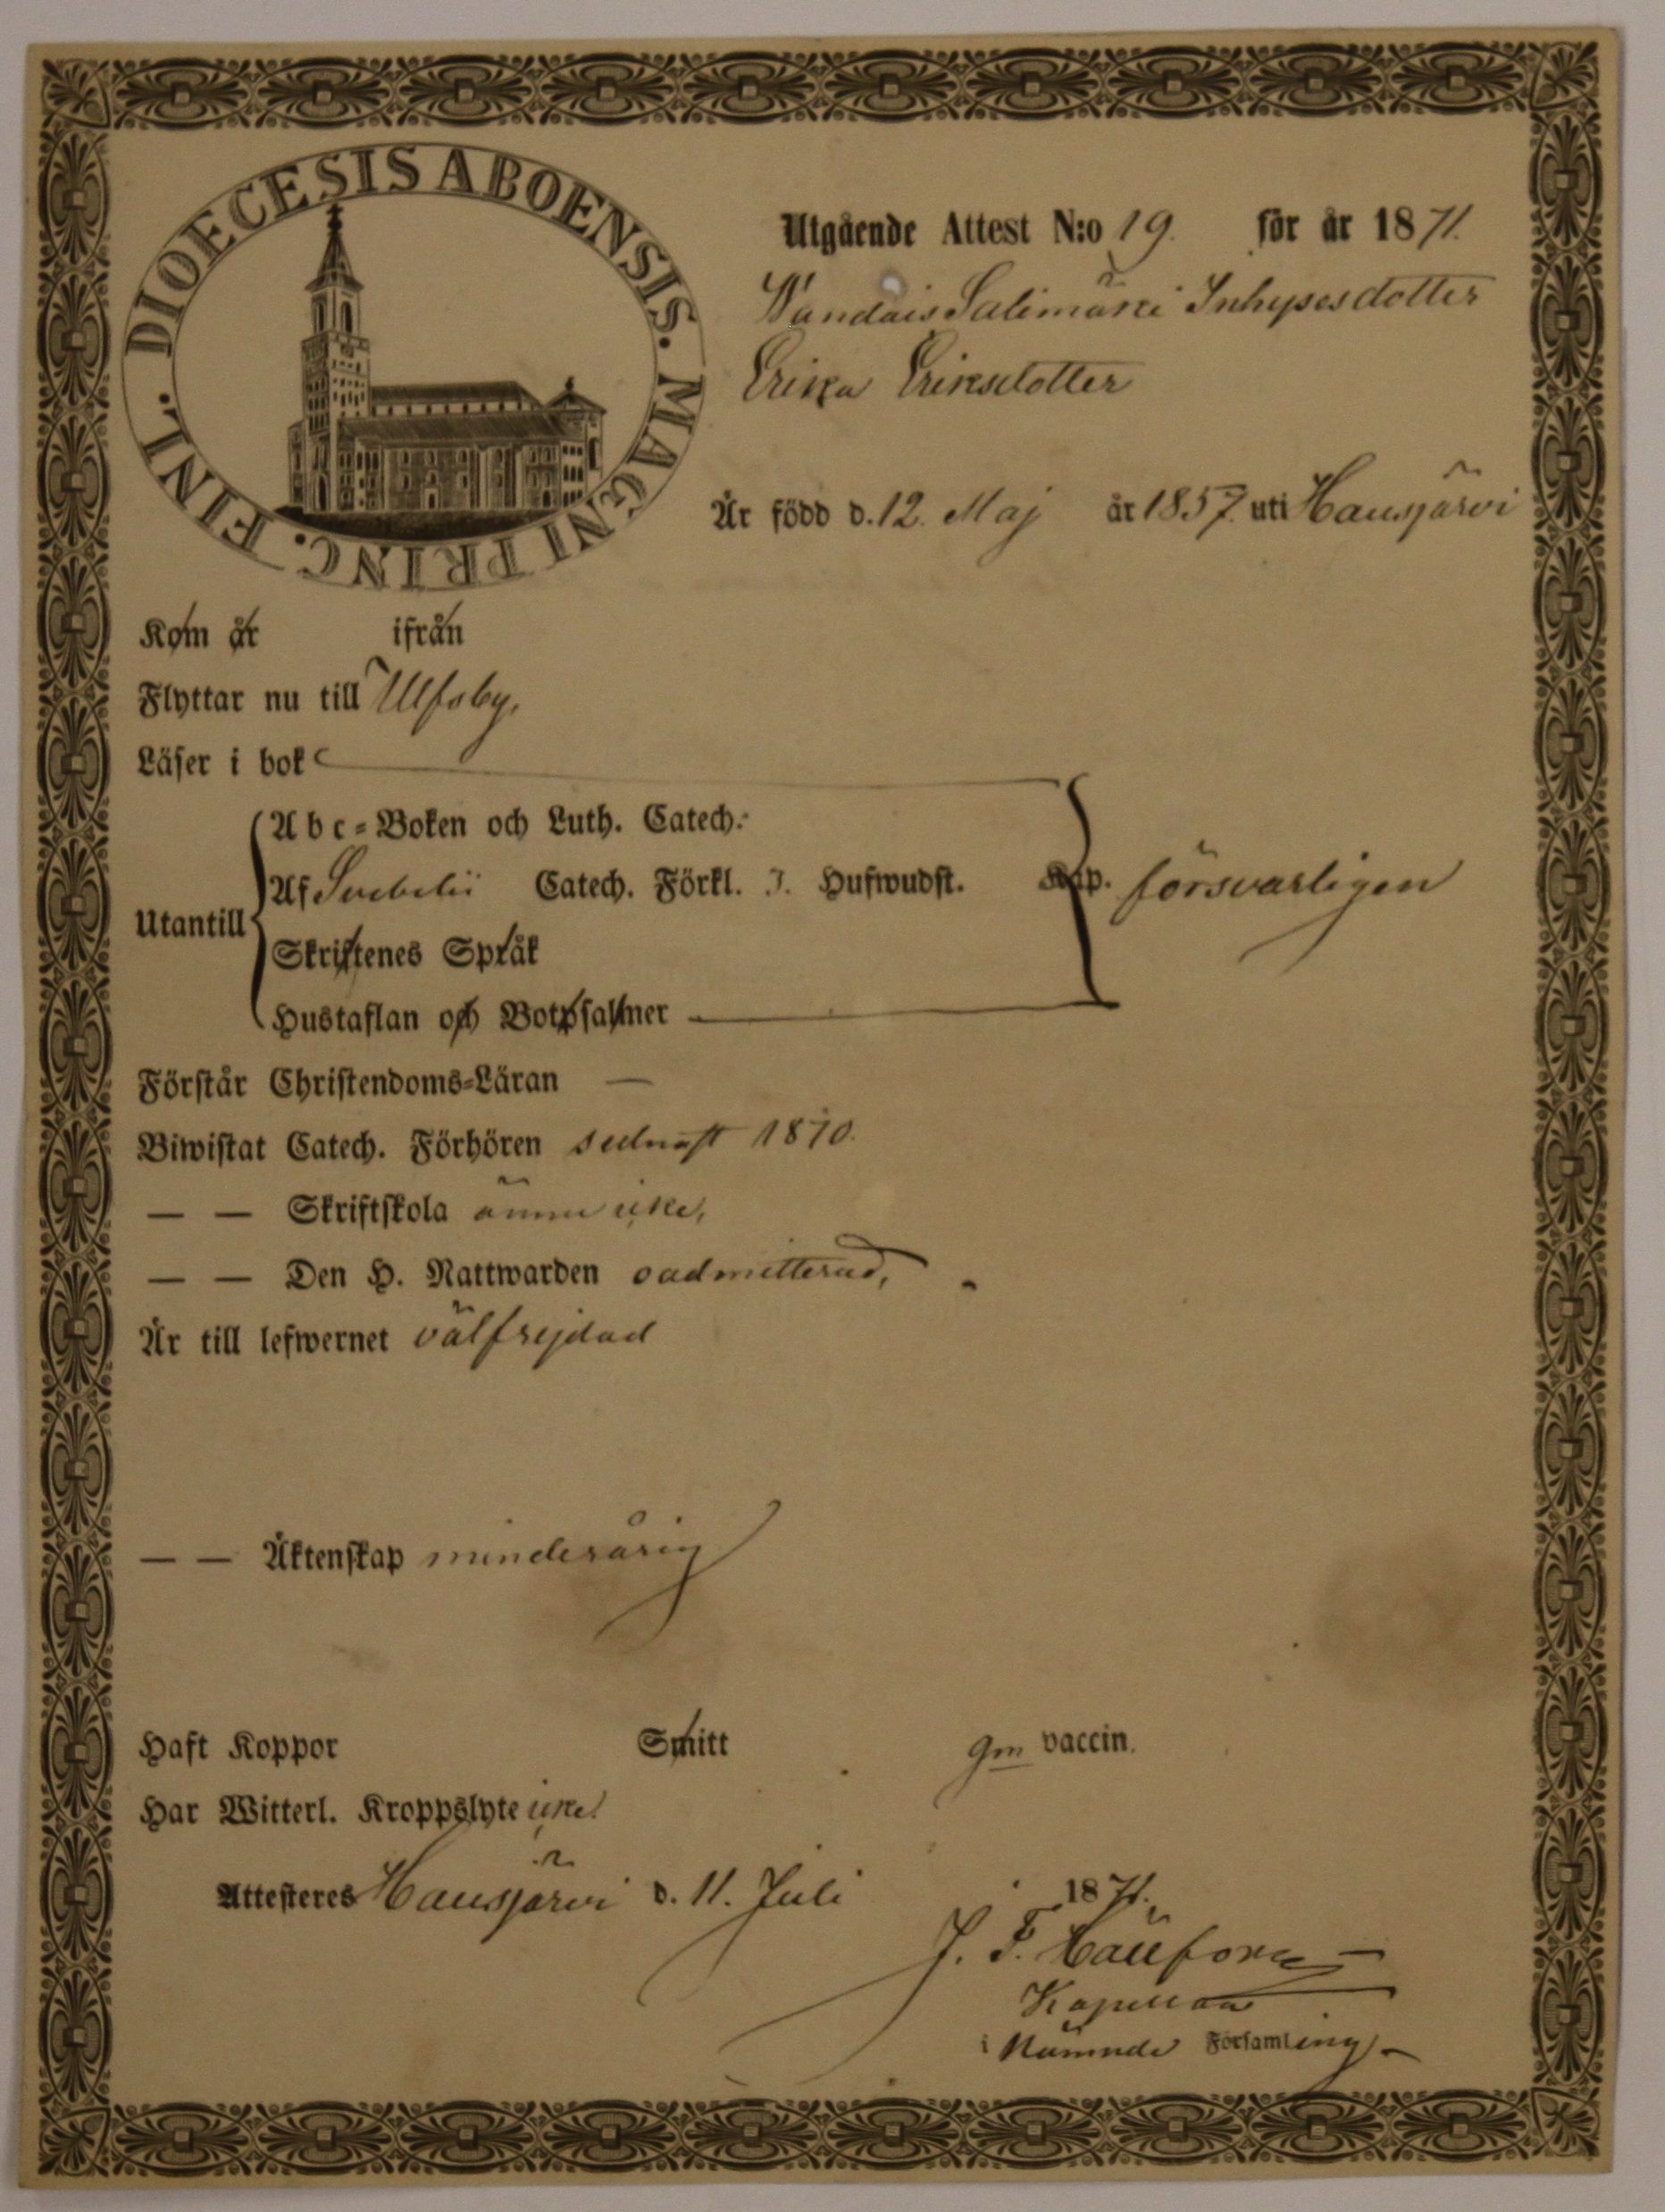 DIOECESIS ABOENSIS. MAGNI PRINC. FINL.
Utgående Attest N:o 19. för år 1871.
Inhysesdotter
Erika Eriksdotter
Är född d. 12. Maj år 1857. uti Hausjärvi
Kom år ifrån
Flyttar nu till Ulfsby,
Läser i bok
Abc-Boken och Luth. Catech.
Af Svebelii Catech. Förkl. I. Hufwudst. Kap. försvarligen
Utantill
Skriftenes Språk
Hustaflan och Botpsalmer
Förstår Christendoms-Läran —
Biwistat Catech. Förhören sednast 1870.
— — Skriftskola ännu icke,
— — Den H. Nattwarden oadmitterad,
Är till lefwernet välfrejdad
— — Äktenskap minderårig
Haft Koppor Smitt gm vaccin.
Har Witterl. Kroppslyte icke.
Attesteres Hausjärvi d. 11. Juli 1871.
J. F.
Kapellan
i Nämnde Församling